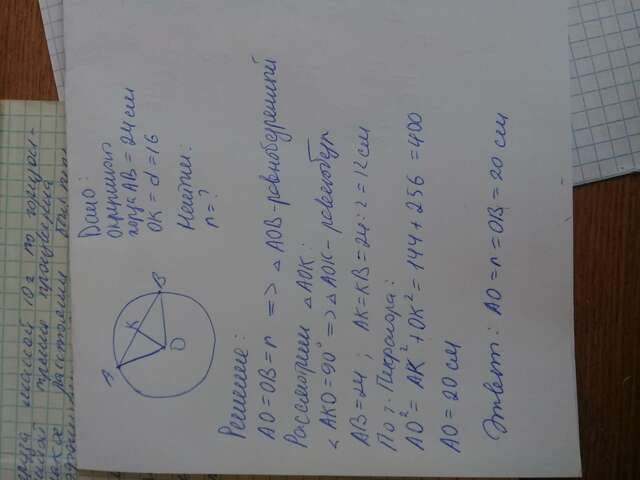 Дано:
окружность
хорда AB = 24 см
OK = d = 16
Найти:
r = ?
A
K
B
O
Решение:
AO = OB = r => △ AOB - равнобедренный
Рассмотрим △ AOK:
∠ AKO = 90° => △ AOK -
AB = 24; AK = KB = 24 : 2 = 12 см
По т. Пифагора:
AO² = AK² + OK² = 144 + 256 = 400
AO = 20 см
Ответ: AO = r = OB = 20 см
массой 10 г по